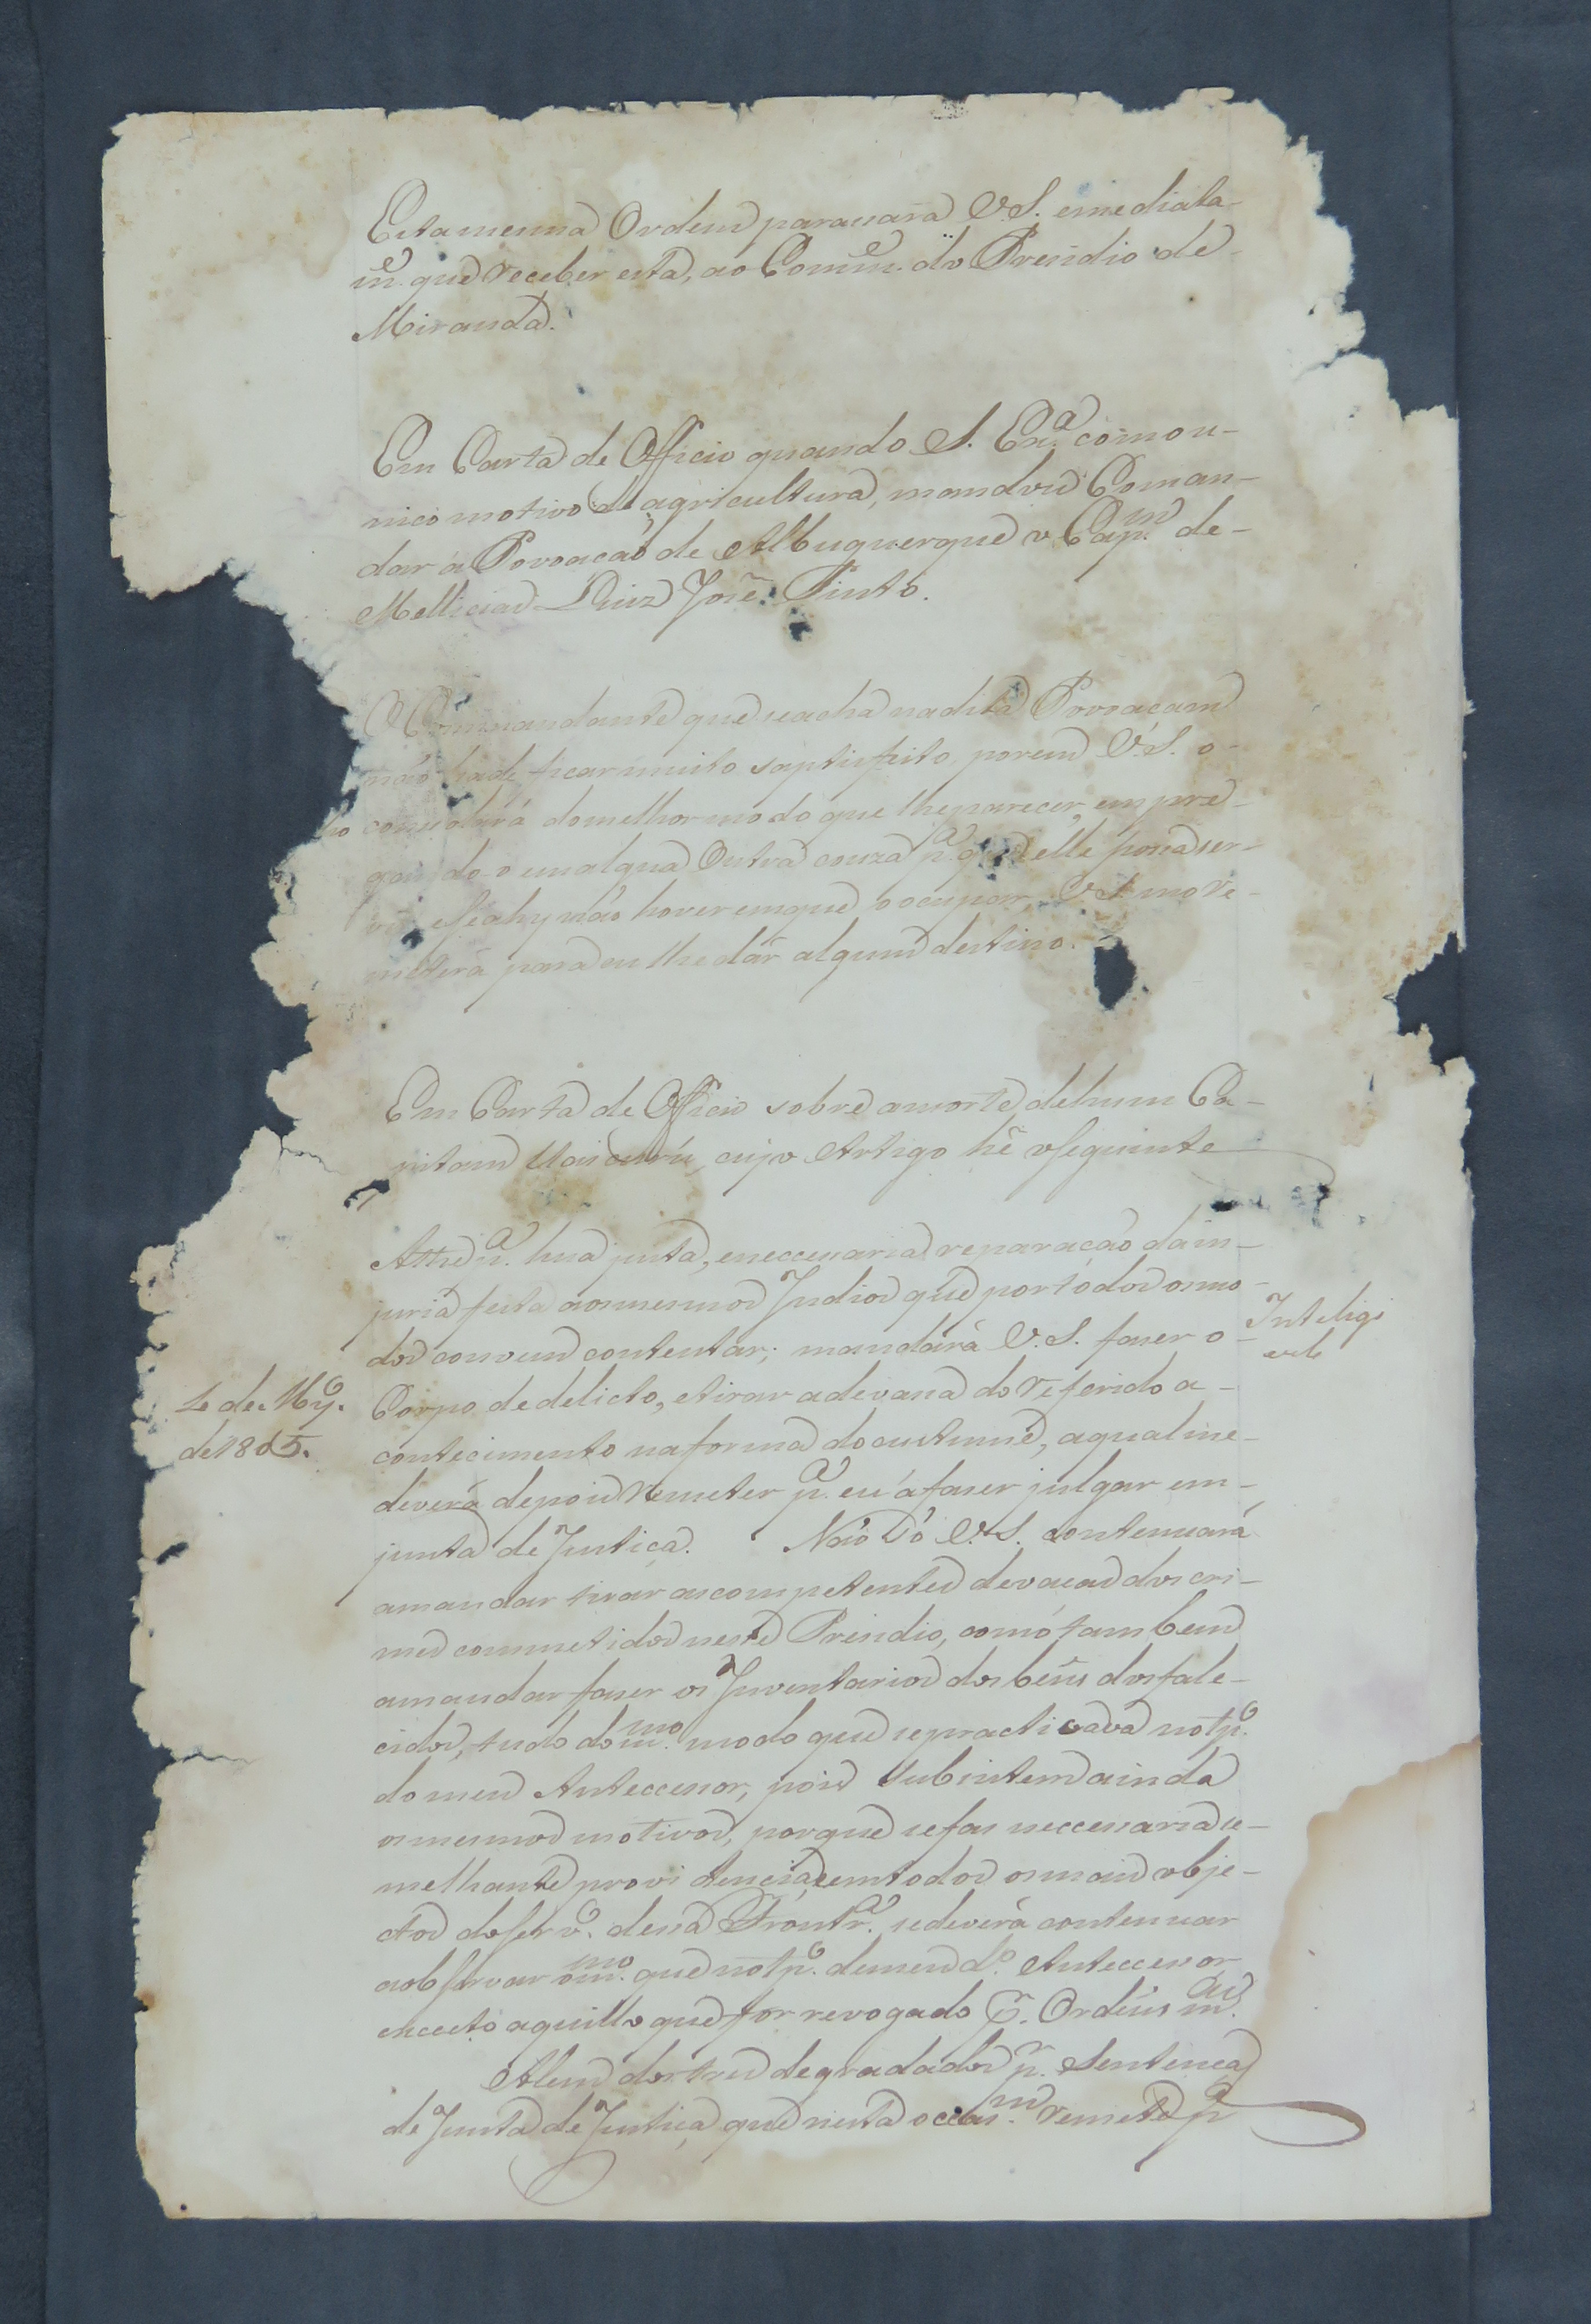 Esta mesma Ordem parassará V.S. emediata-
m.e que receber esta, ao Comm.e do Presidio de
Miranda.
Em Carta de Officio quando S. Ex.a comou-
nico motivo d agricultura, mandou Coman-
dar a Povoação de Albuquerque o Cap.m de-
Mellicias Luiz José Pinto.
O Commandante que se acha na dita Povoaçam
não hade ficar muito saptisfeito, porem V.S. o-
consolará do melhor modo que lhe parecer, empre-
gando-o em algua Outra couza p.a que elle possa ser-
vir, e se ahy não hover em que o ocupar, V.S. mo re-
meterá para eu lhe dár algum destino.
Em Carta de Officio sobre a morte de hum Ca-
pitam Uaicurú, cujo Artigo hé o seguinte
Athe p.a hua justa, e neccessaria reparação da in-
juria feita aos mesmos Indios que por todos os mo-
dos convem contentar; mandará V.S. faser o
Inteligi
vel
4 de Mç.o
de 1805.
Corpo de delicto, e tirar a devassa do referido a-
contecimento na forma do custume, a qual me-
deverá depois remeter p.a eu a faser julgar em-
junta de Justiça. Não só V.S. contenuará
a mandar tirar as competentes devaças dos cri-
mes commetidos nesse Presidio, como tambem
a mandar faser os Inventarios dos bens dos fale-
cidos, tudo do m.mo modo que se practicava no tp.o
do meu Anteccessor, pois Subsistem ainda
os mesmos motivos, porque se fas neccessaria se-
melhante providencia, e em todos os mais obje-
ctos do Serv.o dessa Front.ra se deverá contenuar
a observar o m.mo que no tp.o de meu d.o Anteccessor
excecto aquillo que for revogado p.r Ordens m.as
Alem dos tres degradados p.r Sentença
de Junta de Justiça que nesta occas.m remete p.a